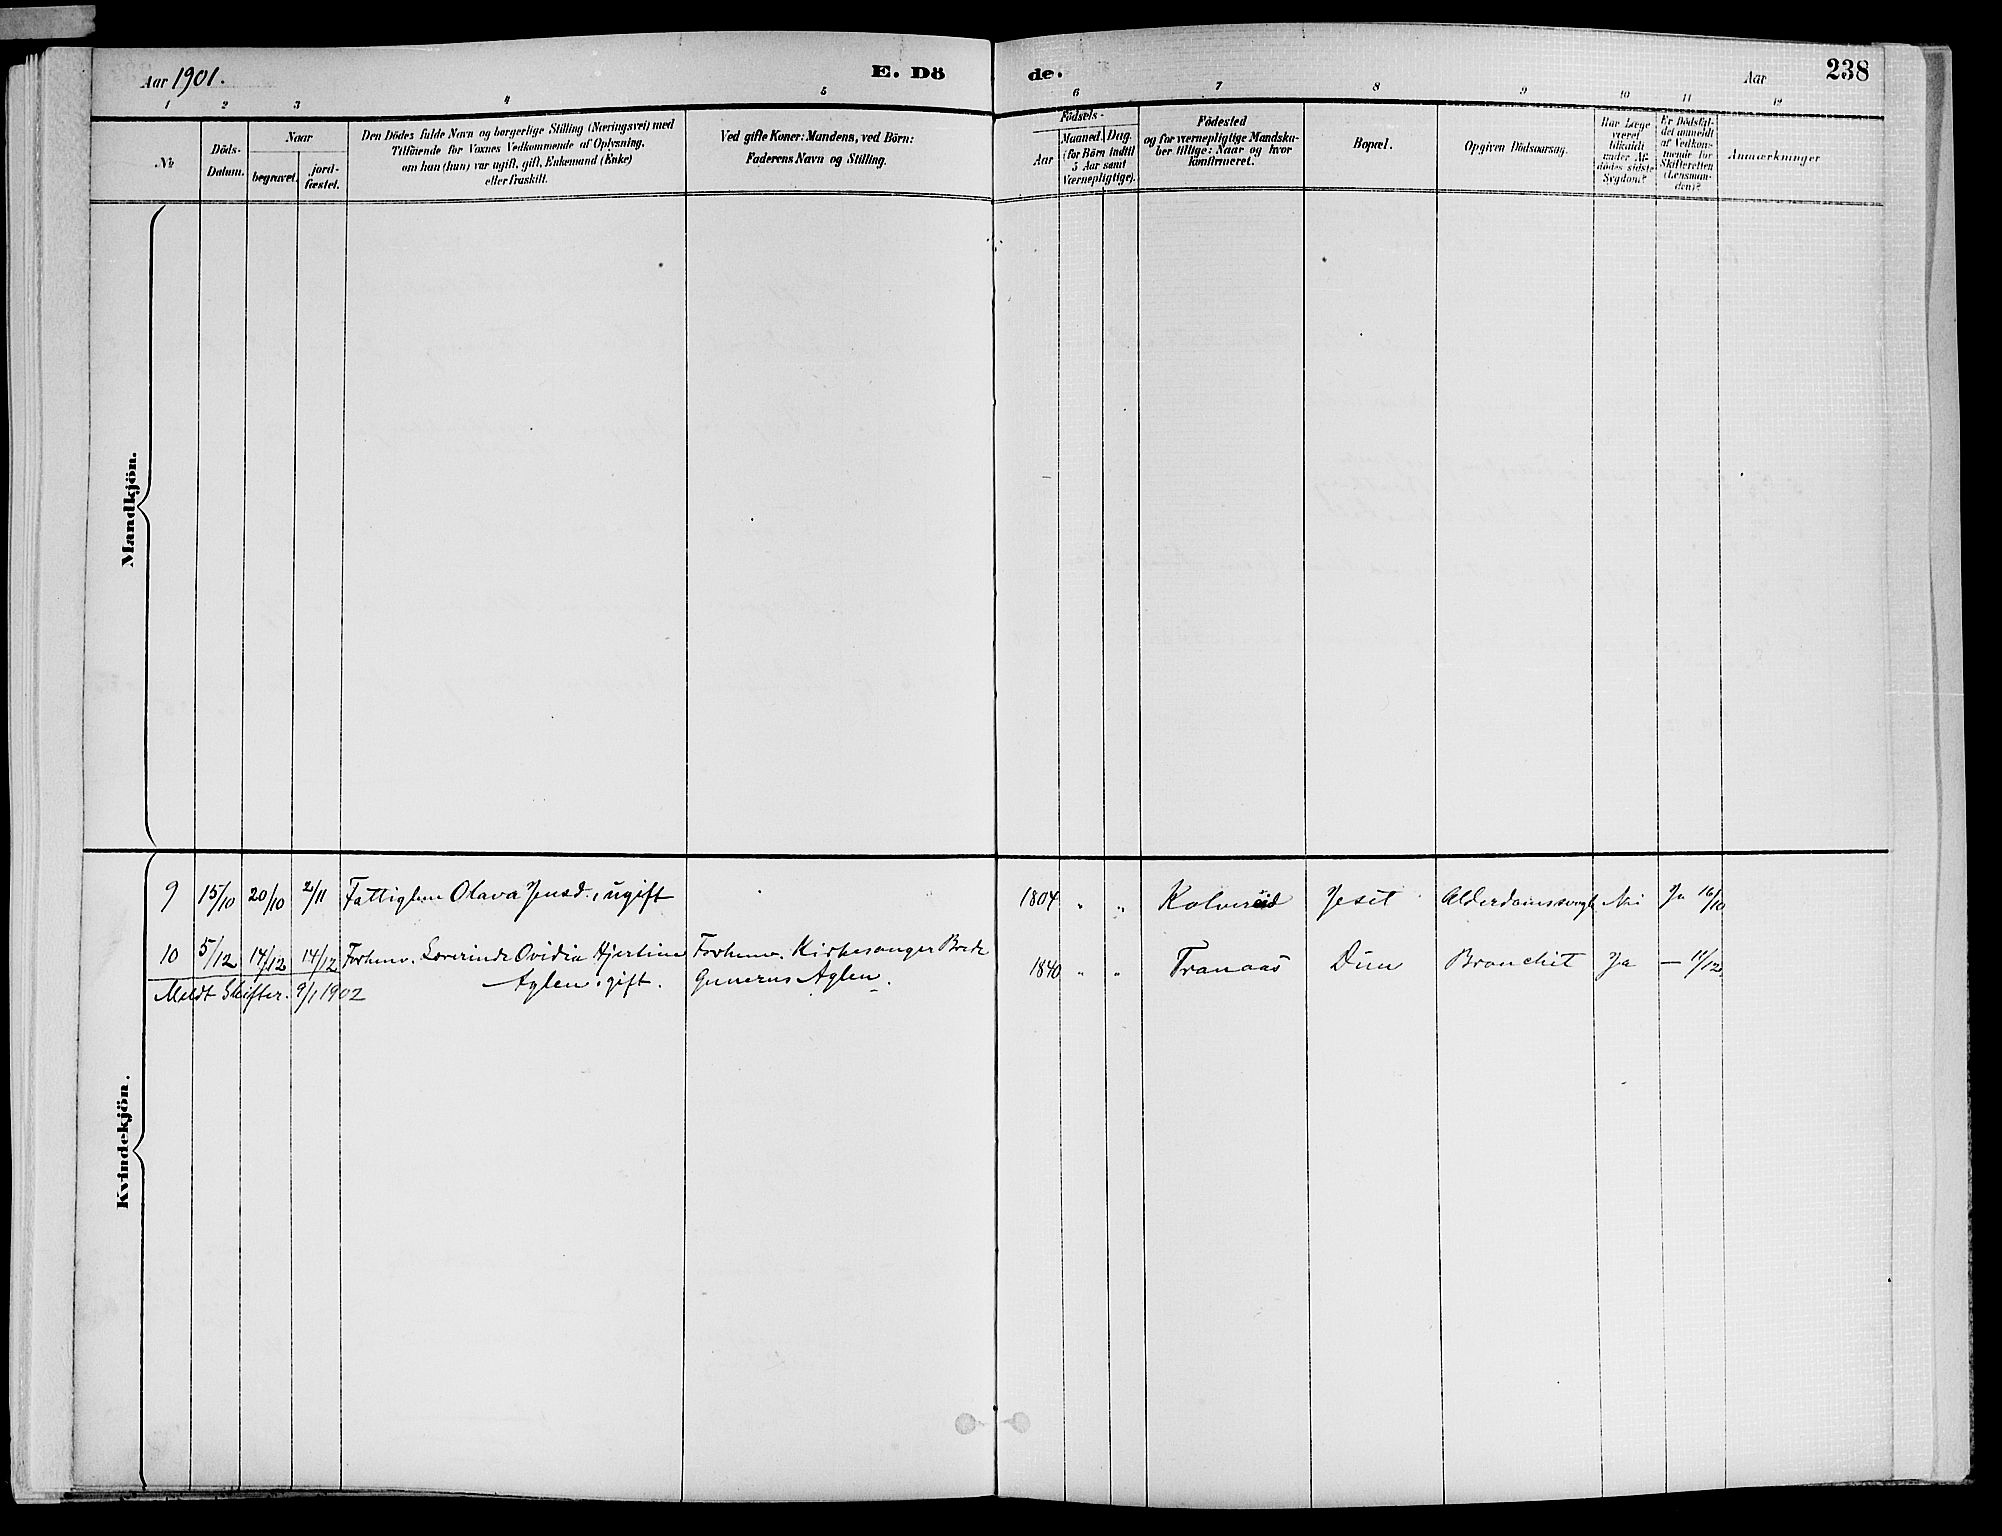 Aar 1901.
E. Dö
de.
Aar
238
1 2 3 4 5 6 7 8 9 10 11 12
№
Döds-
Datum.
Naar
begravet.
jord-
fæstet.
Den Dödes fulde Navn og borgerlige Stilling (Næringsvei) med
Tilföiende for Voxnes Vedkommende af Oplysning,
om han (hun) var ugift, gift, Enkemand (Enke)
eller fraskilt.
Ved gifte Koner: Mandens, ved Börn:
Faderens Navn og Stilling.
Födsels-
Aar
Maaned. Dag.
(for Börn indtil
5 Aar samt
Værnepligtige).
Födested
og for værnepligtige Mandska-
ber tillige: Naar og hvor
konfirmeret.
Bopæl.
Opgiven Dödsaarsag.
Har Læge
været
tilkaldt
under Af-
dödes sidste
Sygdom?
Er Dödsfal-
det anmeldt
af Vedkom-
mende for
Skifteretten
(Lensman-
den)?
Anmærkninger
Mandkjön.
9 15/10 20/10 2/11 Fattiglem Olava Jensd., ugift 1804 " " Kolvereid Jeset Alderdomssvagh. Nei Ja 16/10
10 5/12 14/12 14/12 Forhenv. Ovidia Hjertine Forhenv. Kirkesanger Brede 1840 " " Tranaas Dun Bronchit Ja — 11/12
Meldt Skifter. 9/1 1902 Aglen, gift. Gunerus Aglen.
Kvindekjön.